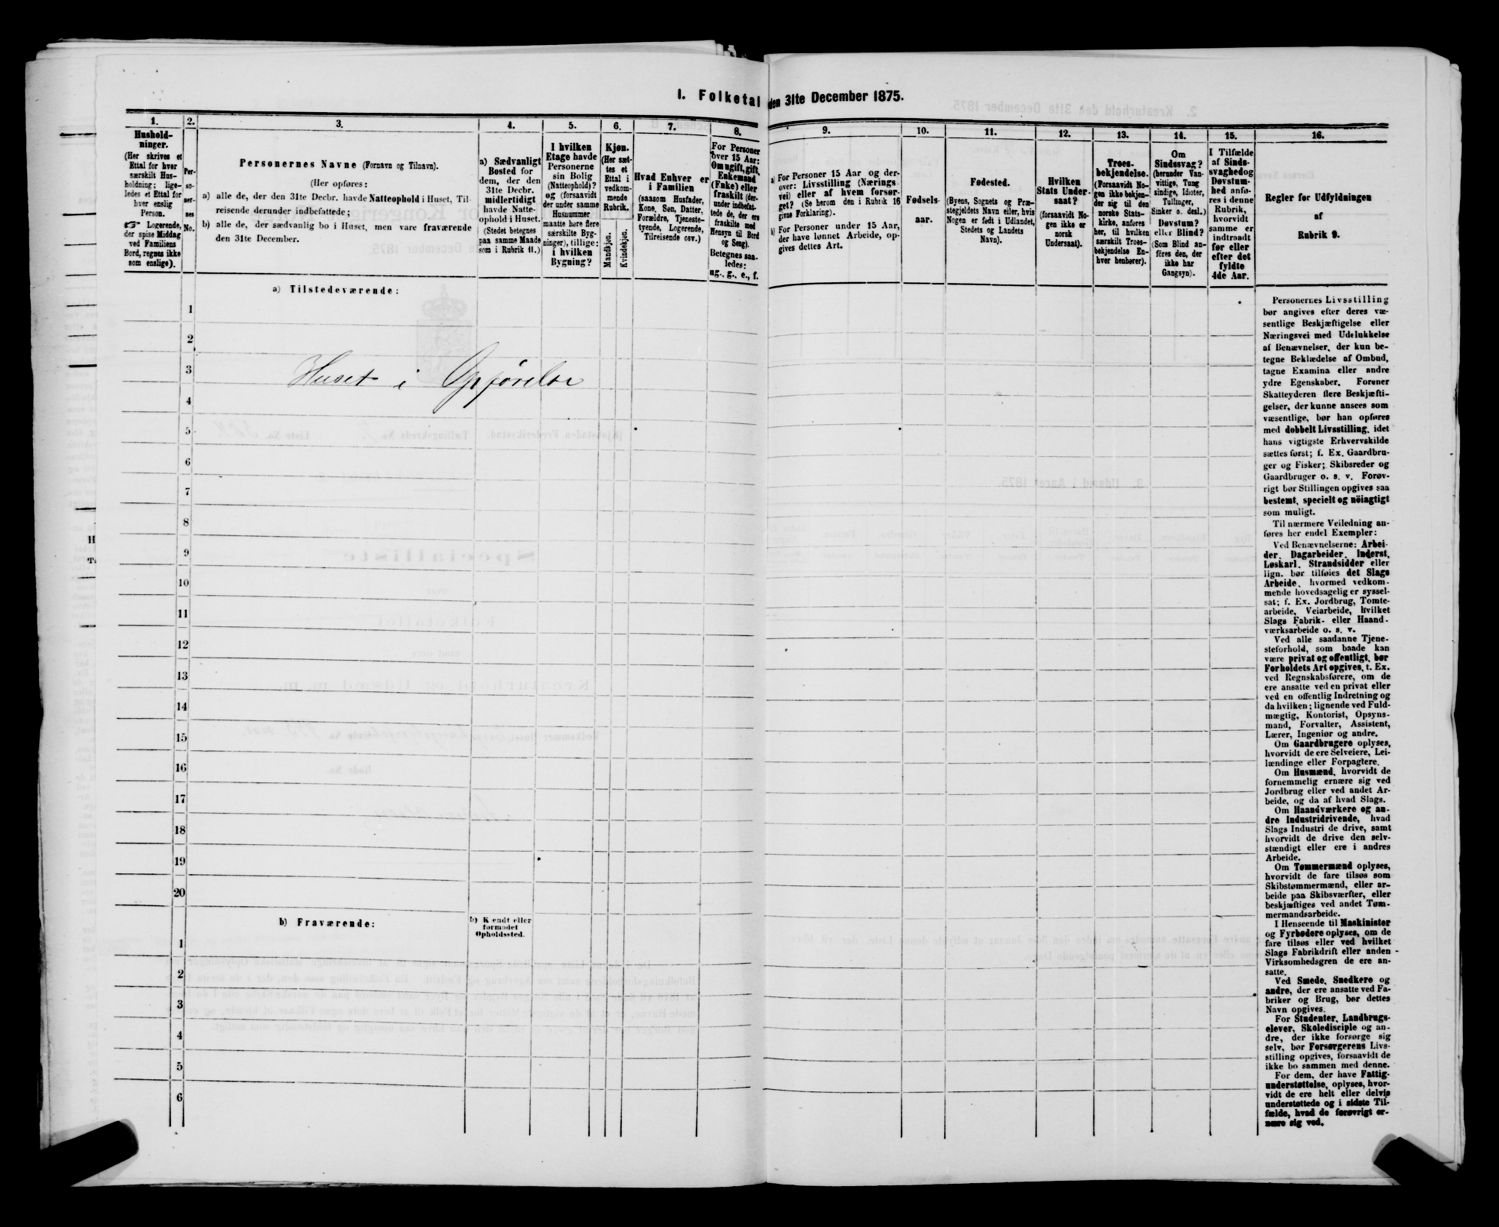 I. Folketal den 31te December 1875.
1.
Hushold-
ninger.
(Her skrives et
Ettal for hver
særskilt Hus-
holdning; lige-
ledes et Ettal for
hver enslig
Person.
☞ Logerende,
der spise Middag
ved Familiens
Bord, regnes ikke
som enslige).
2.
Per-
so-
ner-
nes
No.
3.
Personernes Navne (Fornavn og Tilnavn).
(Her opføres:
a) alle de, der den 31te Decbr. havde Natteophold i Huset, Til-
reisende derunder indbefattede;
b) alle de, der sædvanlig bo i Huset, men vare fraværende
den 31te December.
4.
a) Sædvanligt
Bosted for
dem, der den
31te Decbr.
midlertidigt
havde Natte-
ophold i Huset.
(Stedet betegnes
paa samme Maade
som i Rubrik 11.)
5.
I hvilken
Etage havde
Personerne
sin Bolig
(Natteophold)?
og (forsaavidt
der under samme
Husnummer
maatte høre flere
særskilte Byg-
ninger), tillige:
i hvilken
Bygning?
6.
Kjøn.
(Her sæt-
tes et
Ettal i
vedkom-
mende
Rubrik.
Mandkjøn.
Kvindekjøn.
7.
Hvad Enhver er
i Familien
(saasom Husfader,
Kone, Søn, Datter,
Forældre, Tjeneste-
tyende, Logerende,
Tilreisende osv.)
8.
For Personer
over 15 Aar:
Om ugift, gift,
Enkemand
(Enke) eller
fraskilt (der-
under indbefat-
tede de, der ere
fraskilte med
Hensyn til Bord
og Seng).
Betegnes saa-
ledes:
ug., g., e., f.
9.
a) For Personer 15 Aar og der-
over: Livsstilling (Nærings-
vei) eller af hvem forsør-
get? (Se herom den i Rubrik 16
givne Forklaring).
b) For Personer under 15 Aar,
der have lønnet Arbeide, op-
gives dettes Art.
10.
Fødsels-
aar.
11.
Fødested.
(Byens, Sognets og Præ-
stegjeldets Navn eller, hvis
Nogen er født i Udlandet,
Stedets og Landets
Navn).
12.
Hvilken
Stats Under-
saat?
(forsaavidt No-
gen ikke er
norsk
Undersaat).
13.
Troes-
bekjendelse.
(Forsaavidt No-
gen ikke bekjen-
der sig til den
norske Stats-
kirke, anføres
her, til hvilken
særskilt Troes-
bekjendelse En-
hver henhører).
14.
Om
Sindssvag?
(herunder Van-
vittige, Tung-
sindige, Idioter,
Tullinger,
Sinker o. desl.)
Døvstum?
eller Blind?
(Som Blind an-
føres den, der
ikke har
Gangsyn).
15.
I Tilfælde
af Sinds-
svaghed og
Døvstum-
hed anfø-
res i denne
Rubrik,
hvorvidt
samme er
indtraadt
før eller
efter det
fyldte
4de Aar.
16.
Regler for Udfyldningen
af
Rubrik 9.
a) Tilstedeværende:
1
2
3
Huset i Opførelse
4
5
6
7
8
9
10
11
12
13
14
15
16
17
18
19
20
b) Fraværende:
b) Kjendt eller
formodet
Opholdssted.
1
2
3
4
5
6
Personernes Livsstilling
bør angives efter deres væ-
sentlige Beskjæftigelse eller
Næringsvei med Udelukkelse
af Benævnelser, der kun be-
tegne Beklædelse af Ombud,
tagne Examina eller andre
ydre Egenskaber. Forener
Skatteyderen flere Beskjæfti-
gelser, der kunne ansees som
væsentlige, bør han opføres
med dobbelt Livsstilling, idet
hans vigtigste Erhvervskilde
sættes først; f. Ex. Gaardbru-
ger og Fisker; Skibsreder og
Gaardbruger o. s. v. Forøv-
rigt bør Stillingen opgives saa
bestemt, specielt og nøiagtigt
som muligt.
Til nærmere Veiledning an-
føres her endel Exempler:
Ved Benævnelserne: Arbei-
der, Dagarbeider, Inderst,
Løskarl, Strandsidder eller
lign. bør tilføies det Slags
Arbeide, hvormed vedkom-
mende hovedsagelig er syssel-
sat; f. Ex. Jordbrug, Tomte-
arbeide, Veiarbeide, hvilket
Slags Fabrik- eller Haand-
værksarbeide o. s. v.
Ved alle saadanne Tjene-
steforhold, som baade kan
være privat og offentligt, bør
Forholdets Art opgives, t. Ex.
ved Regnskabsførere, om de
ere ansatte ved en privat eller
ved en offentlig Indretning og
da hvilken; lignende ved Fuld-
mægtig, Kontorist, Opsyns-
mand, Forvalter, Assistent,
Lærer, Ingeniør og andre.
Om Gaardbrugere oplyses,
hvorvidt de ere Selveiere, Lei-
lændinge eller Forpagtere.
Om Husmænd, hvorvidt de
fornemmelig ernære sig ved
Jordbrug eller ved andet Ar-
beide, og da af hvad Slags.
Om Haandværkere og an-
dre Industridrivende, hvad
Slags Industri de drive, samt
hvorvidt de drive den selv-
stændigt eller ere i andres
Arbeide.
Om Tømmermænd oplyses,
hvorvidt de fare tilsøs som
Skibstømmermænd, eller ar-
beide paa Skibsværfter, eller
beskjæftiges ved andet Tøm-
mermandsarbeide.
I Henseende til Maskinister
og Fyrbødere oplyses, om de
fare tilsøs eller ved hvilket
Slags Fabrikdrift eller anden
Virksomhedsgren de ere an-
satte.
Ved Smede, Snedkere og
andre, der ere ansatte ved Fa-
briker og Brug, bør dettes
Navn opgives.
For Studenter, Landbrugs-
elever, Skoledisciple og an-
dre, der ikke forsørge sig
selv, bør Forsørgerens Livs-
stilling opgives, forsaavidt de
ikke bo sammen med denne.
For dem, der have Fattig-
understøttelse, oplyses, hvor-
vidt de ere helt eller delvis
understøttede og i sidste Til-
fælde, hvad de forøvrigt er-
nære sig ved.